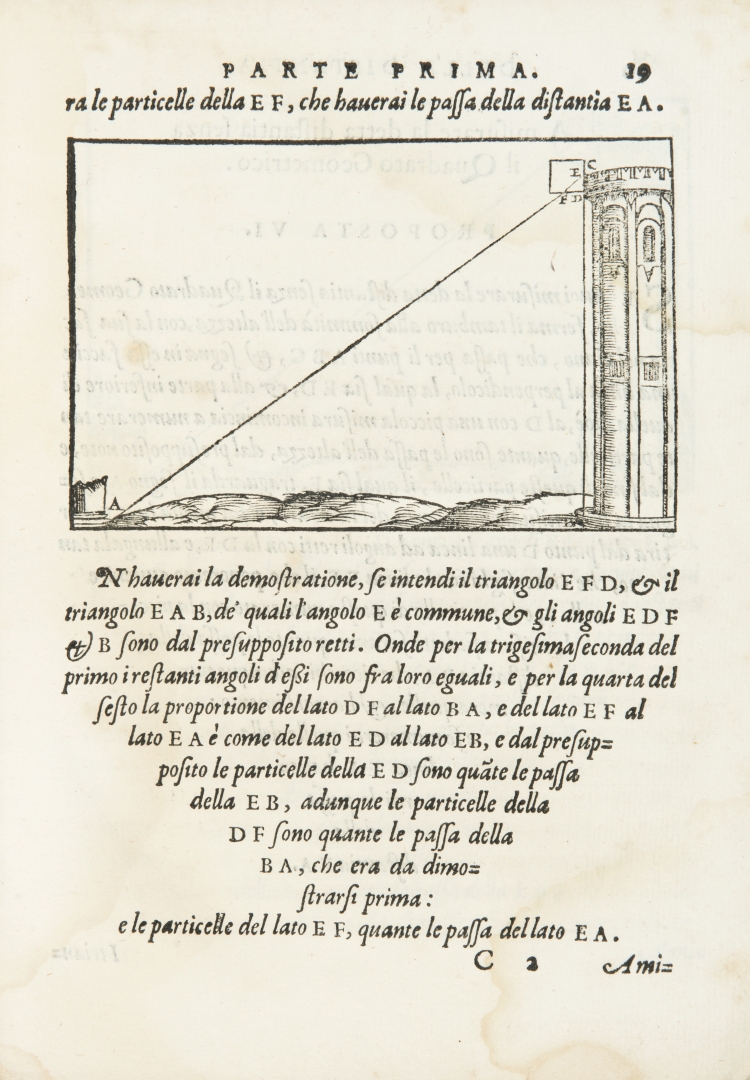 PARTE PRIMA. 19
ra le particelle della E F, che hauerai le paſſa della diſtantia E A.
E C
F D
A
B
N hauerai la demoſtratione, ſe intendi il triangolo E F D, & il
triangolo E A B, de' quali l'angolo E è commune, & gli angoli E D F
& B ſono dal preſuppoſito retti. Onde per la trigeſimaſeconda del
primo i reſtanti angoli d'eßi ſono fra loro eguali, e per la quarta del
ſeſto la proportione del lato D F al lato B A, e del lato E F al
lato E A è come del lato E D al lato EB, e dal preſup=
poſito le particelle della E D ſono quāte le paſſa
della E B, adunque le particelle della
D F ſono quante le paſſa della
B A, che era da dimo=
ſtrarſi prima:
e le particelle del lato E F, quante le paſſa del lato E A.
C 2 Ami=